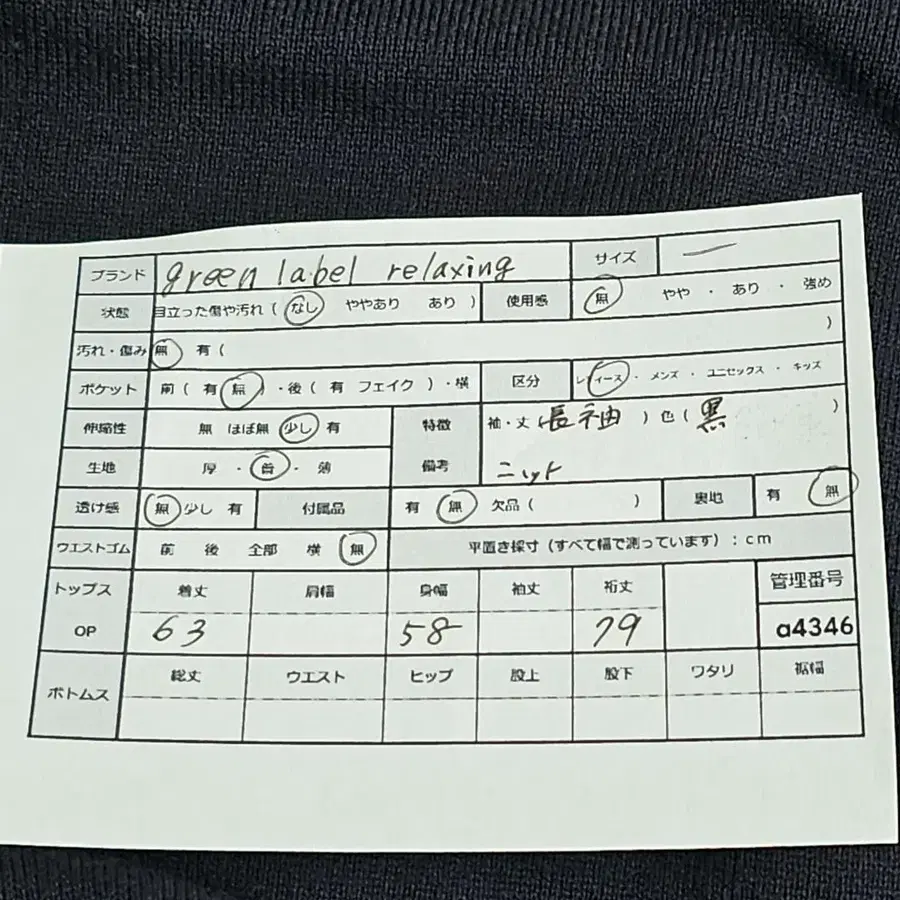 ブランド green label relaxing サイズ ー
状態 目立った傷や汚れ ( なし ややあり あり ) 使用感 無 やや ・ あり ・ 強め
汚れ・傷み 無 有 ( )
ポケット 前 ( 有 無 ) ・後 ( 有 フェイク ) ・横 区分 レディース ・ メンズ ・ ユニセックス ・ キッズ
伸縮性 無 ほぼ無 少し 有 特徴 袖・丈 長袖 ) 色 ( 黒 )
生地 厚 ・ 普 ・ 薄 備考 ニット
透け感 無 少し 有 付属品 有 無 欠品 ( ) 裏地 有 無
ウエストゴム 前 後 全部 横 無 平置き採寸 (すべて幅で測っています) : cm
トップス 着丈 肩幅 身幅 袖丈 裄丈 管理番号
OP 63 58 79 a4346
ボトムス 総丈 ウエスト ヒップ 股上 股下 ワタリ 裾幅